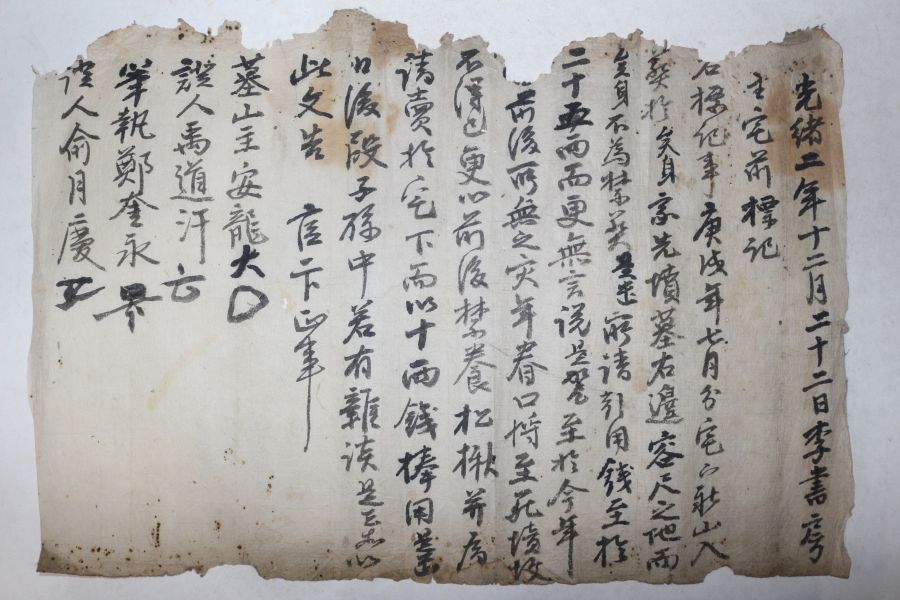 光緒二年十二月二十二日李書房
主宅前標記
右標記事庚戌年七月分宅下新山入
葬於矣身家先墳墓右邊容尺之地而
矣身不為禁葬是遣所請彩用錢至於
二十五兩而更無言說是乎 至於今年
前後所無之灾年眷口將至死境故
不得已更以前後禁養松楸幷爲
請賣於宅下而以十兩錢捧用爲
以後段子孫中若有雜談是去等以
此文告 官卞正事
墓山主安龍大
證人禹道汗
筆執鄭奎永
證人俞月慶